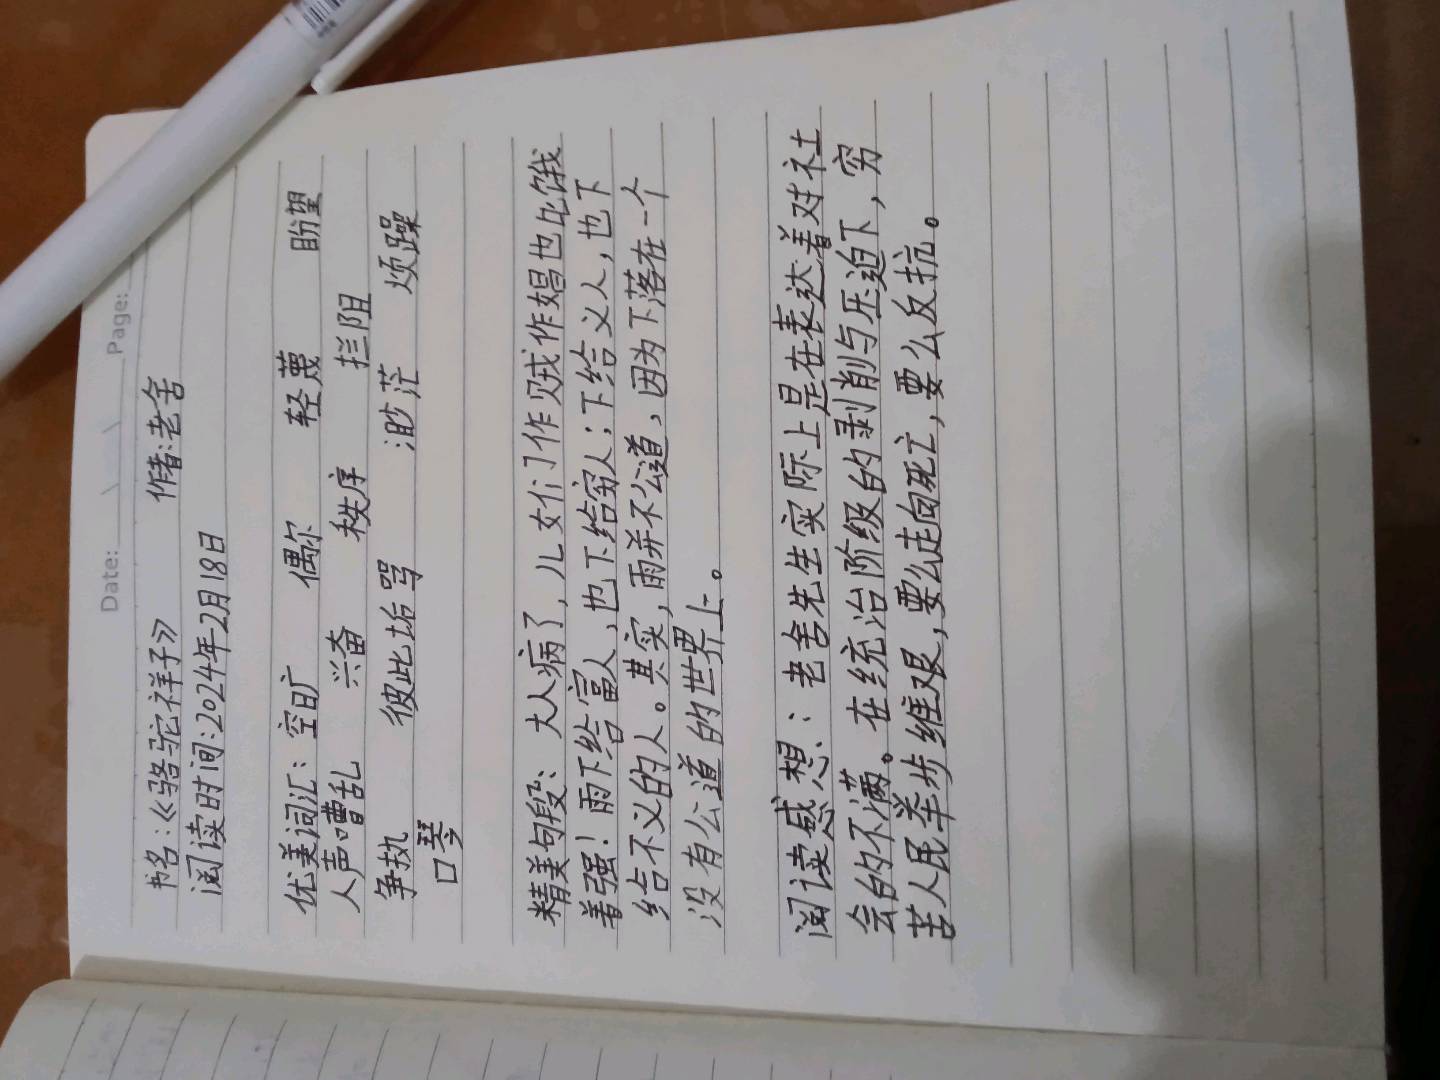 Date: Page:
书名:《骆驼祥子》 作者:老舍
阅读时间:2024年2月18日
优美词汇:空旷 偶尔 轻蔑 盼望
人声嘈乱 兴奋 秩序 拦阻
争执 彼此垢骂 渺茫 烦躁
口琴
精美句段:大人病了,儿女们作贼作娼也比饿
着强!雨下给富人,也下给穷人;下给义人,也下
给不义的人。其实,雨并不公道,因为下落在一个
没有公道的世界上。
阅读感想:老舍先生实际上是在表达着对社
会的不满。在统治阶级的剥削与压迫下,穷
苦人民举步维艰,要么走向死亡,要么反抗。